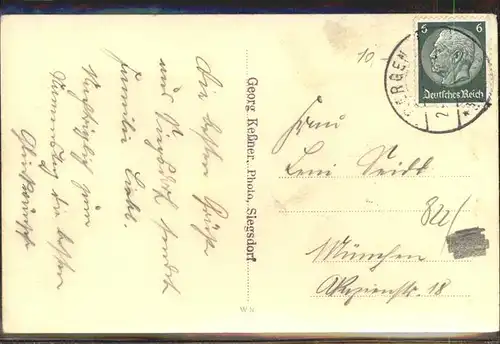 Die besten Grüße
aus Siegsdorf sendet
Familie
Nachträglich zum
Namenstag die besten
Glückwünsche
Georg Keßner, Photo, Siegsdorf
W N
10,-
5 6
Deutsches Reich
BERGEN
Frau
Leni Seidl
822/
München
18